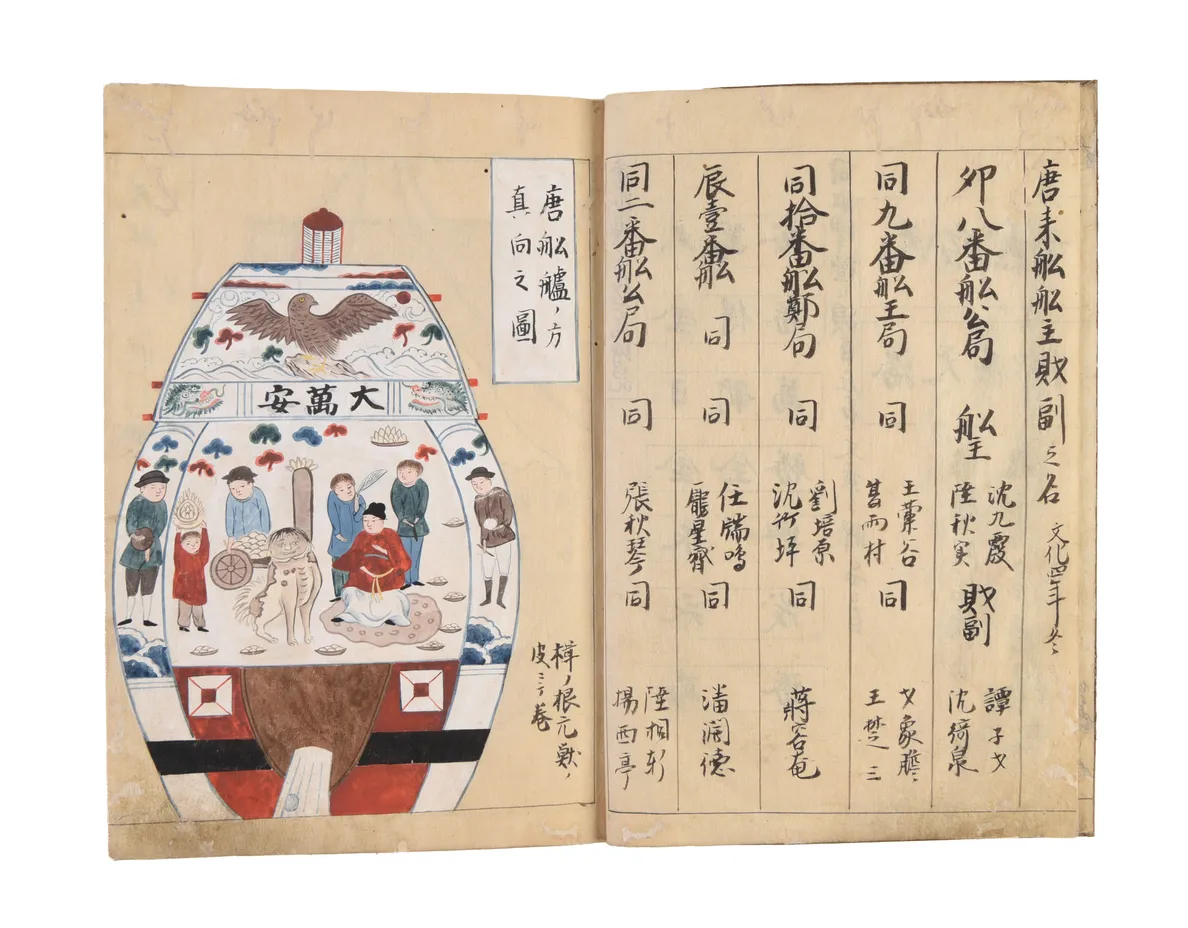 唐来舩舩主財副之名 文化四年
卯八番舩公局 舩主 沈九霞 陸秋実 財副 譚子 沈綺泉
同九番舩王局 同 王粟谷 同 王楚三
同拾番舩鄭局 同 劉培原 沈竹坪 同 蒋容菴
辰壹番舩 同 同 任瑞鳴 龐星齋 同 潘潤徳
同二番舩公局 同 張秋琴 同 陸相新 揚西亭
唐舩艫ノ方
真向之圖
大萬安
樟ノ根元獣ノ
皮ニテ巻